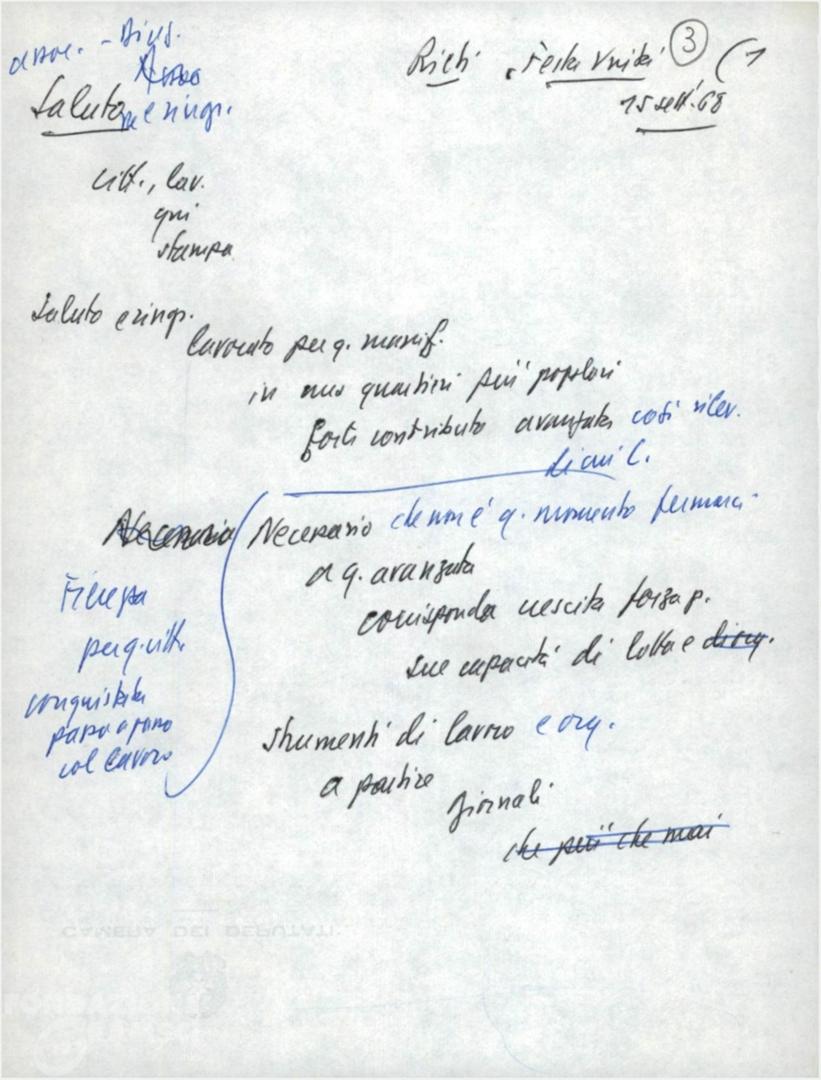 Rieti, Festa Unità (3) (1
15 sett. 68
Saluto e ringr.
citt., lav.
qui
stampa
Saluto e ringr.
lavorato per q. manif.
in nuo quartieri più popolari
forte contributo avanzata così rilev.
di cui l.
Necessario
Necessario che non è q. momento fermarci
a q. avanzata
corrisponda crescita forza p.
sue capacità di lotta e di org.
Fierezza
per q. vitt.
conquistata
passo a passo
col lavoro
strumenti di lavoro e org.
a partire
giornali
che più che mai
CAMERA DEI DEPUTATI